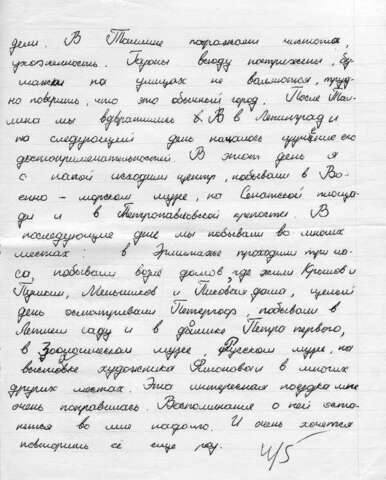 дели. В Таллине поражали чистота,
ухоженность. Газоны всюду пострижены, бу-
мажки на улицах не валяются, труд-
но поверить, что это обычный город. После Тал-
лина мы возвратились в Ленинград и
на следующий день началось изучение его
достопримечательностей. В этот день я
с папой исходили центр, побывали в Во-
енно-морском музее, на Сенатской площа-
ди и в Петропавловской крепости. В
последующие дне мы побывали во многих
местах в Эрмитаже проходили три ча-
са, побывали возле домов, где жили Крылов и
Пушкин, Меньшиков и Пиковая дама, целый
день осматривали Петергоф, побывали в
Летнем саду и в домике Петра первого,
в Зоологическом музее, Русском музее, на
выставке художника Филонова и в многих
других местах. Эта интересная поездка мне
очень понравилась. Воспоминание о ней оста-
нется во мне надолго. И очень хочется
повторить её ещё раз.
4/5